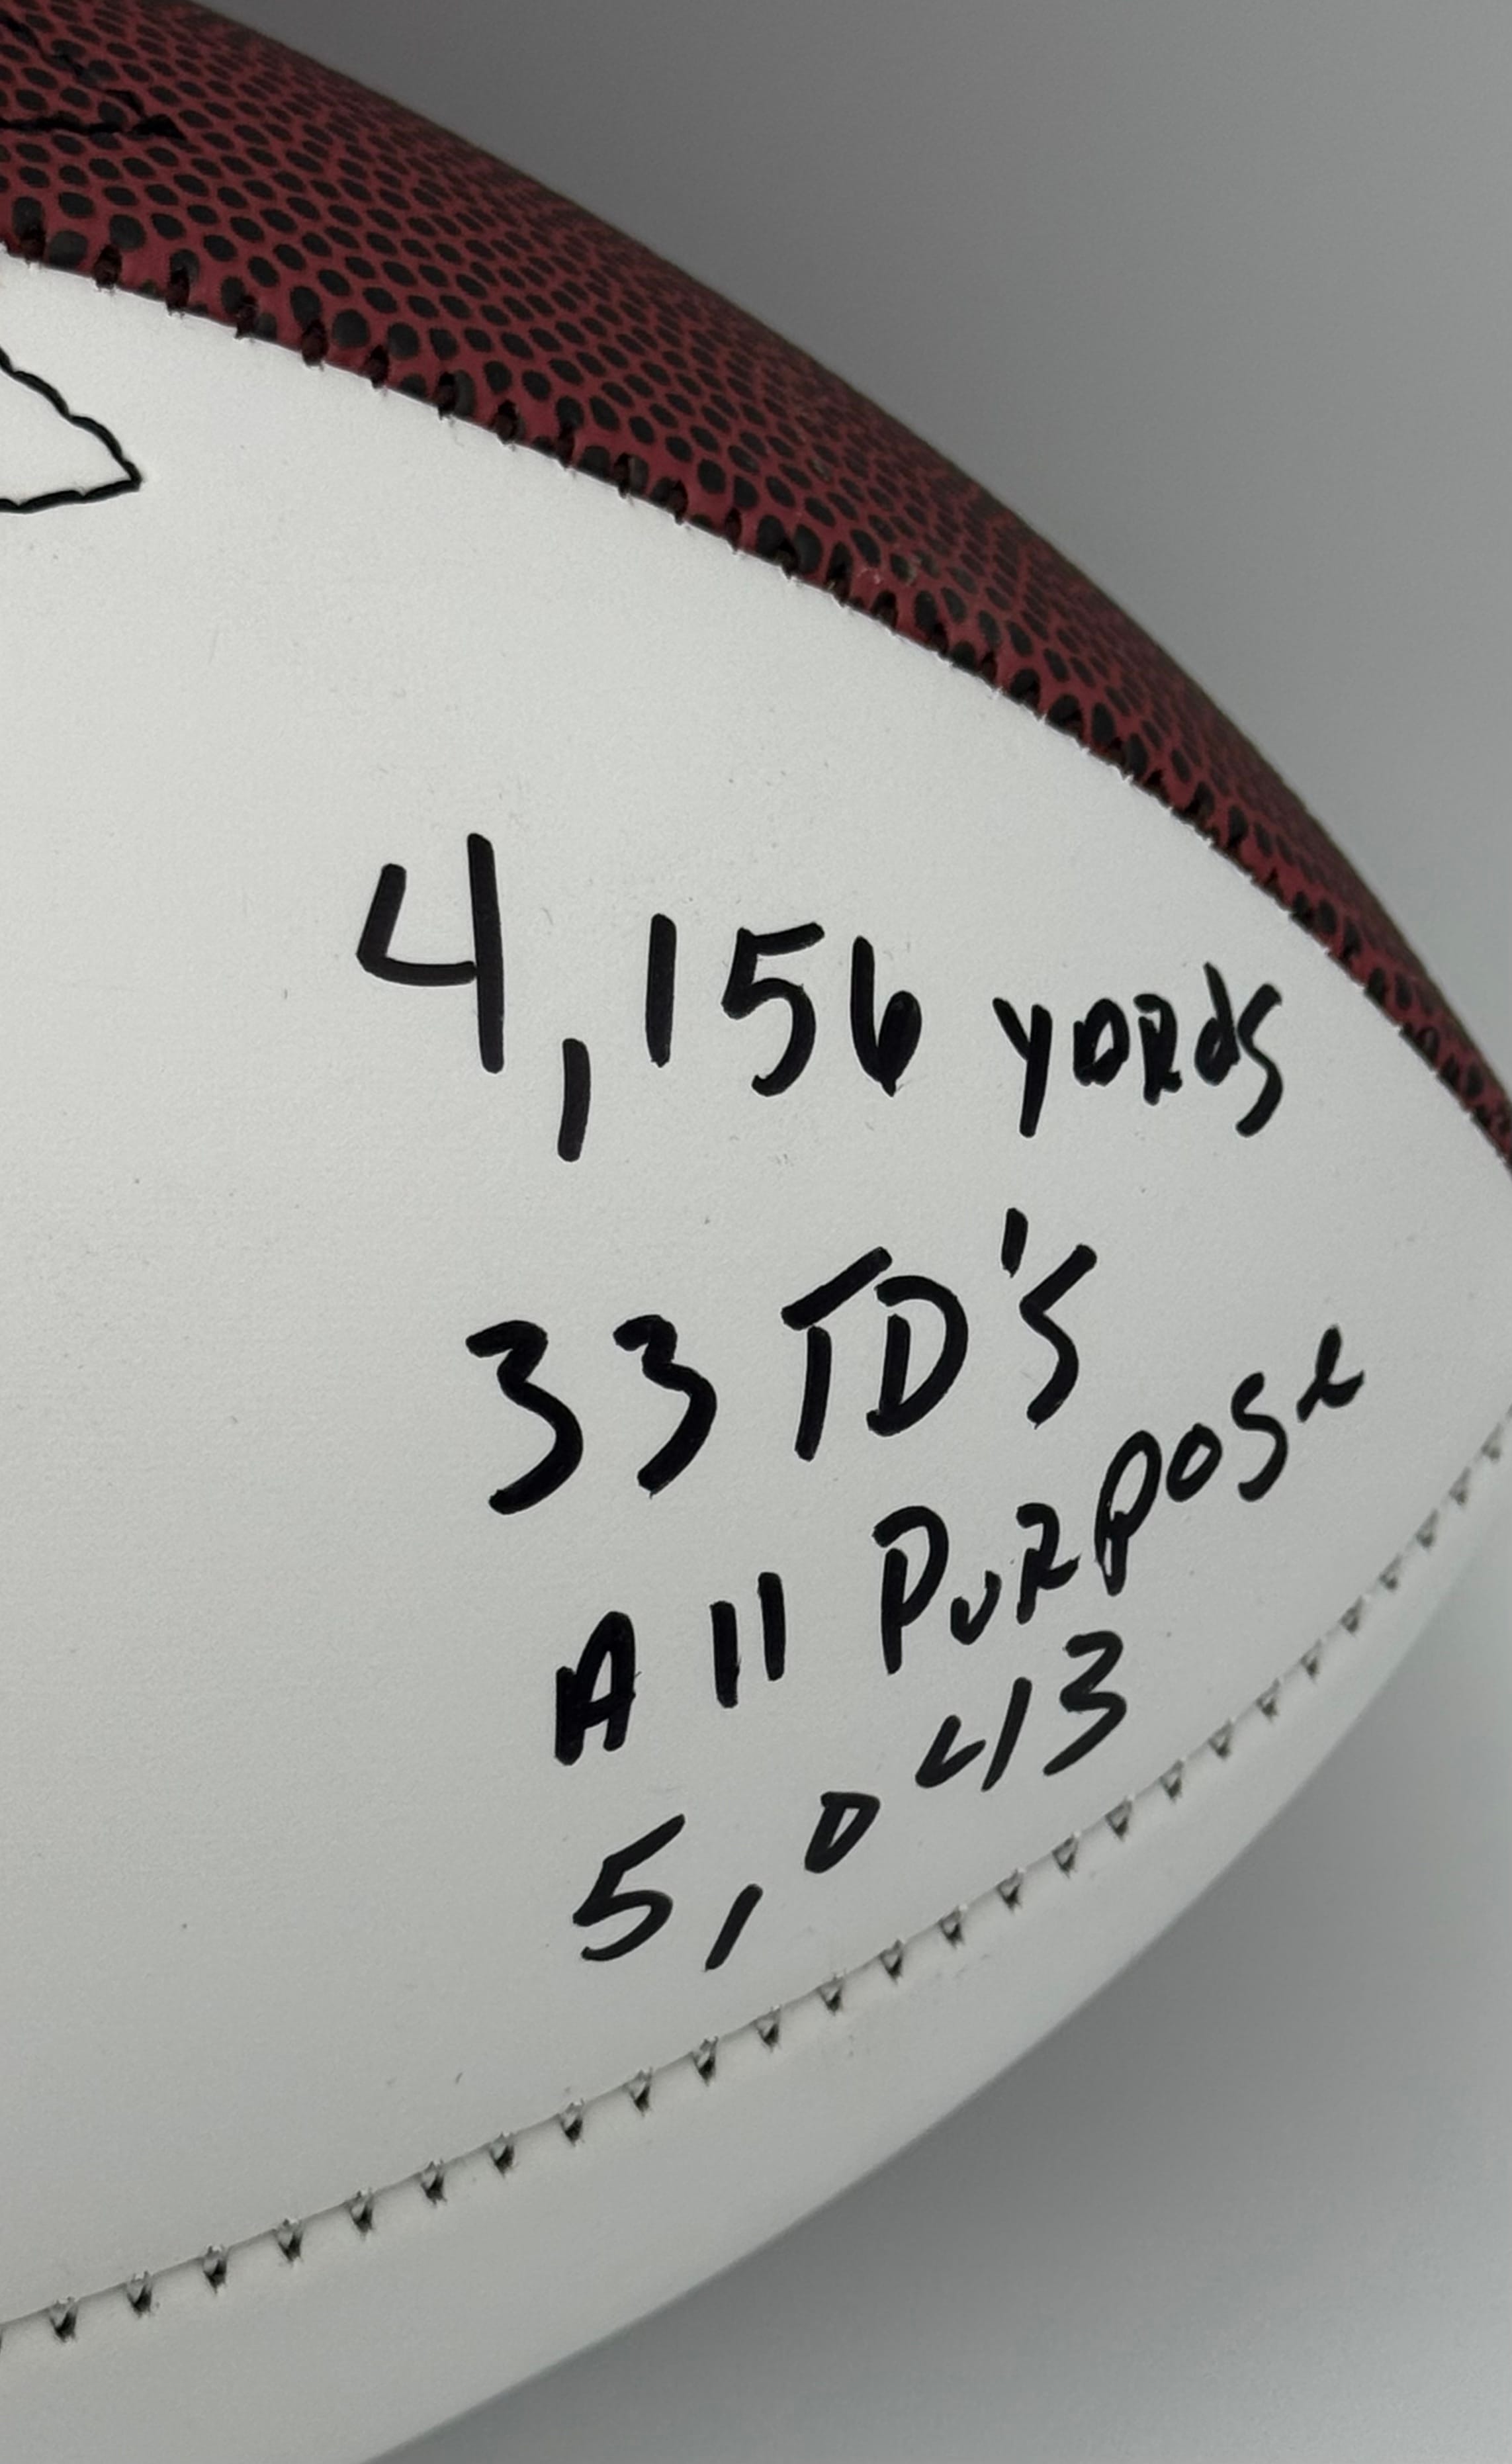 4,156 yards
33 TD's
All Purpose
5,043